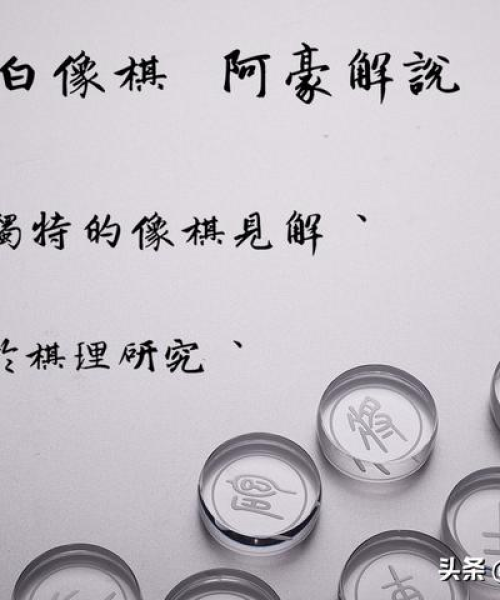 白像棋 阿豪解說
獨特的像棋見解、
於棋理研究、
將
車
头条@